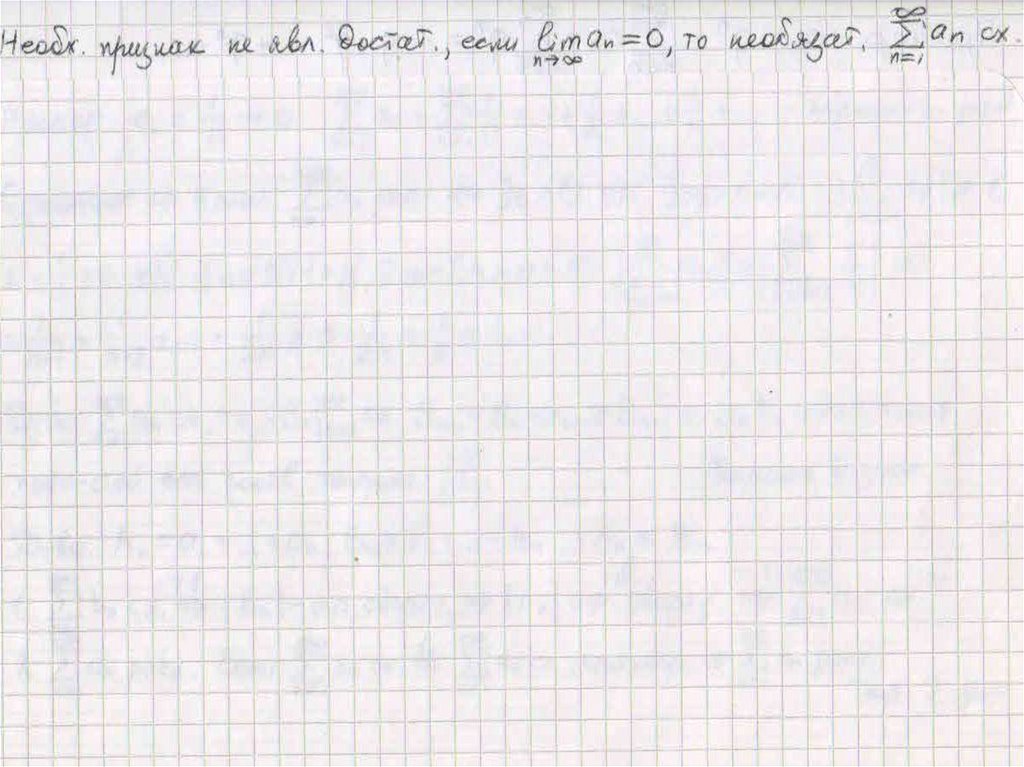 Необх. признак не явл. достат., если lim aₙ = 0, то необязат. ∑ aₙ сх.
n→∞ n=1 ∞